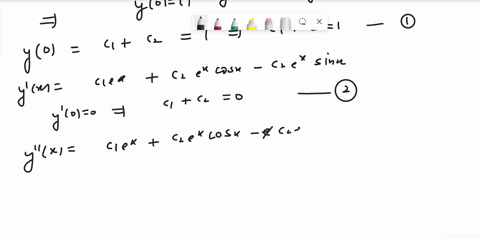 ⇒ y(0)=1
y(0) = c₁ + c₂ = 1 ⇒ =1 — ①
y'(x) = c₁eˣ + c₂ eˣ cosx − c₂ eˣ sinx
y'(0)=0 ⇒ c₁ + c₂ = 0 — ②
y''(x) = c₁eˣ + c₂eˣ cosx − c₂